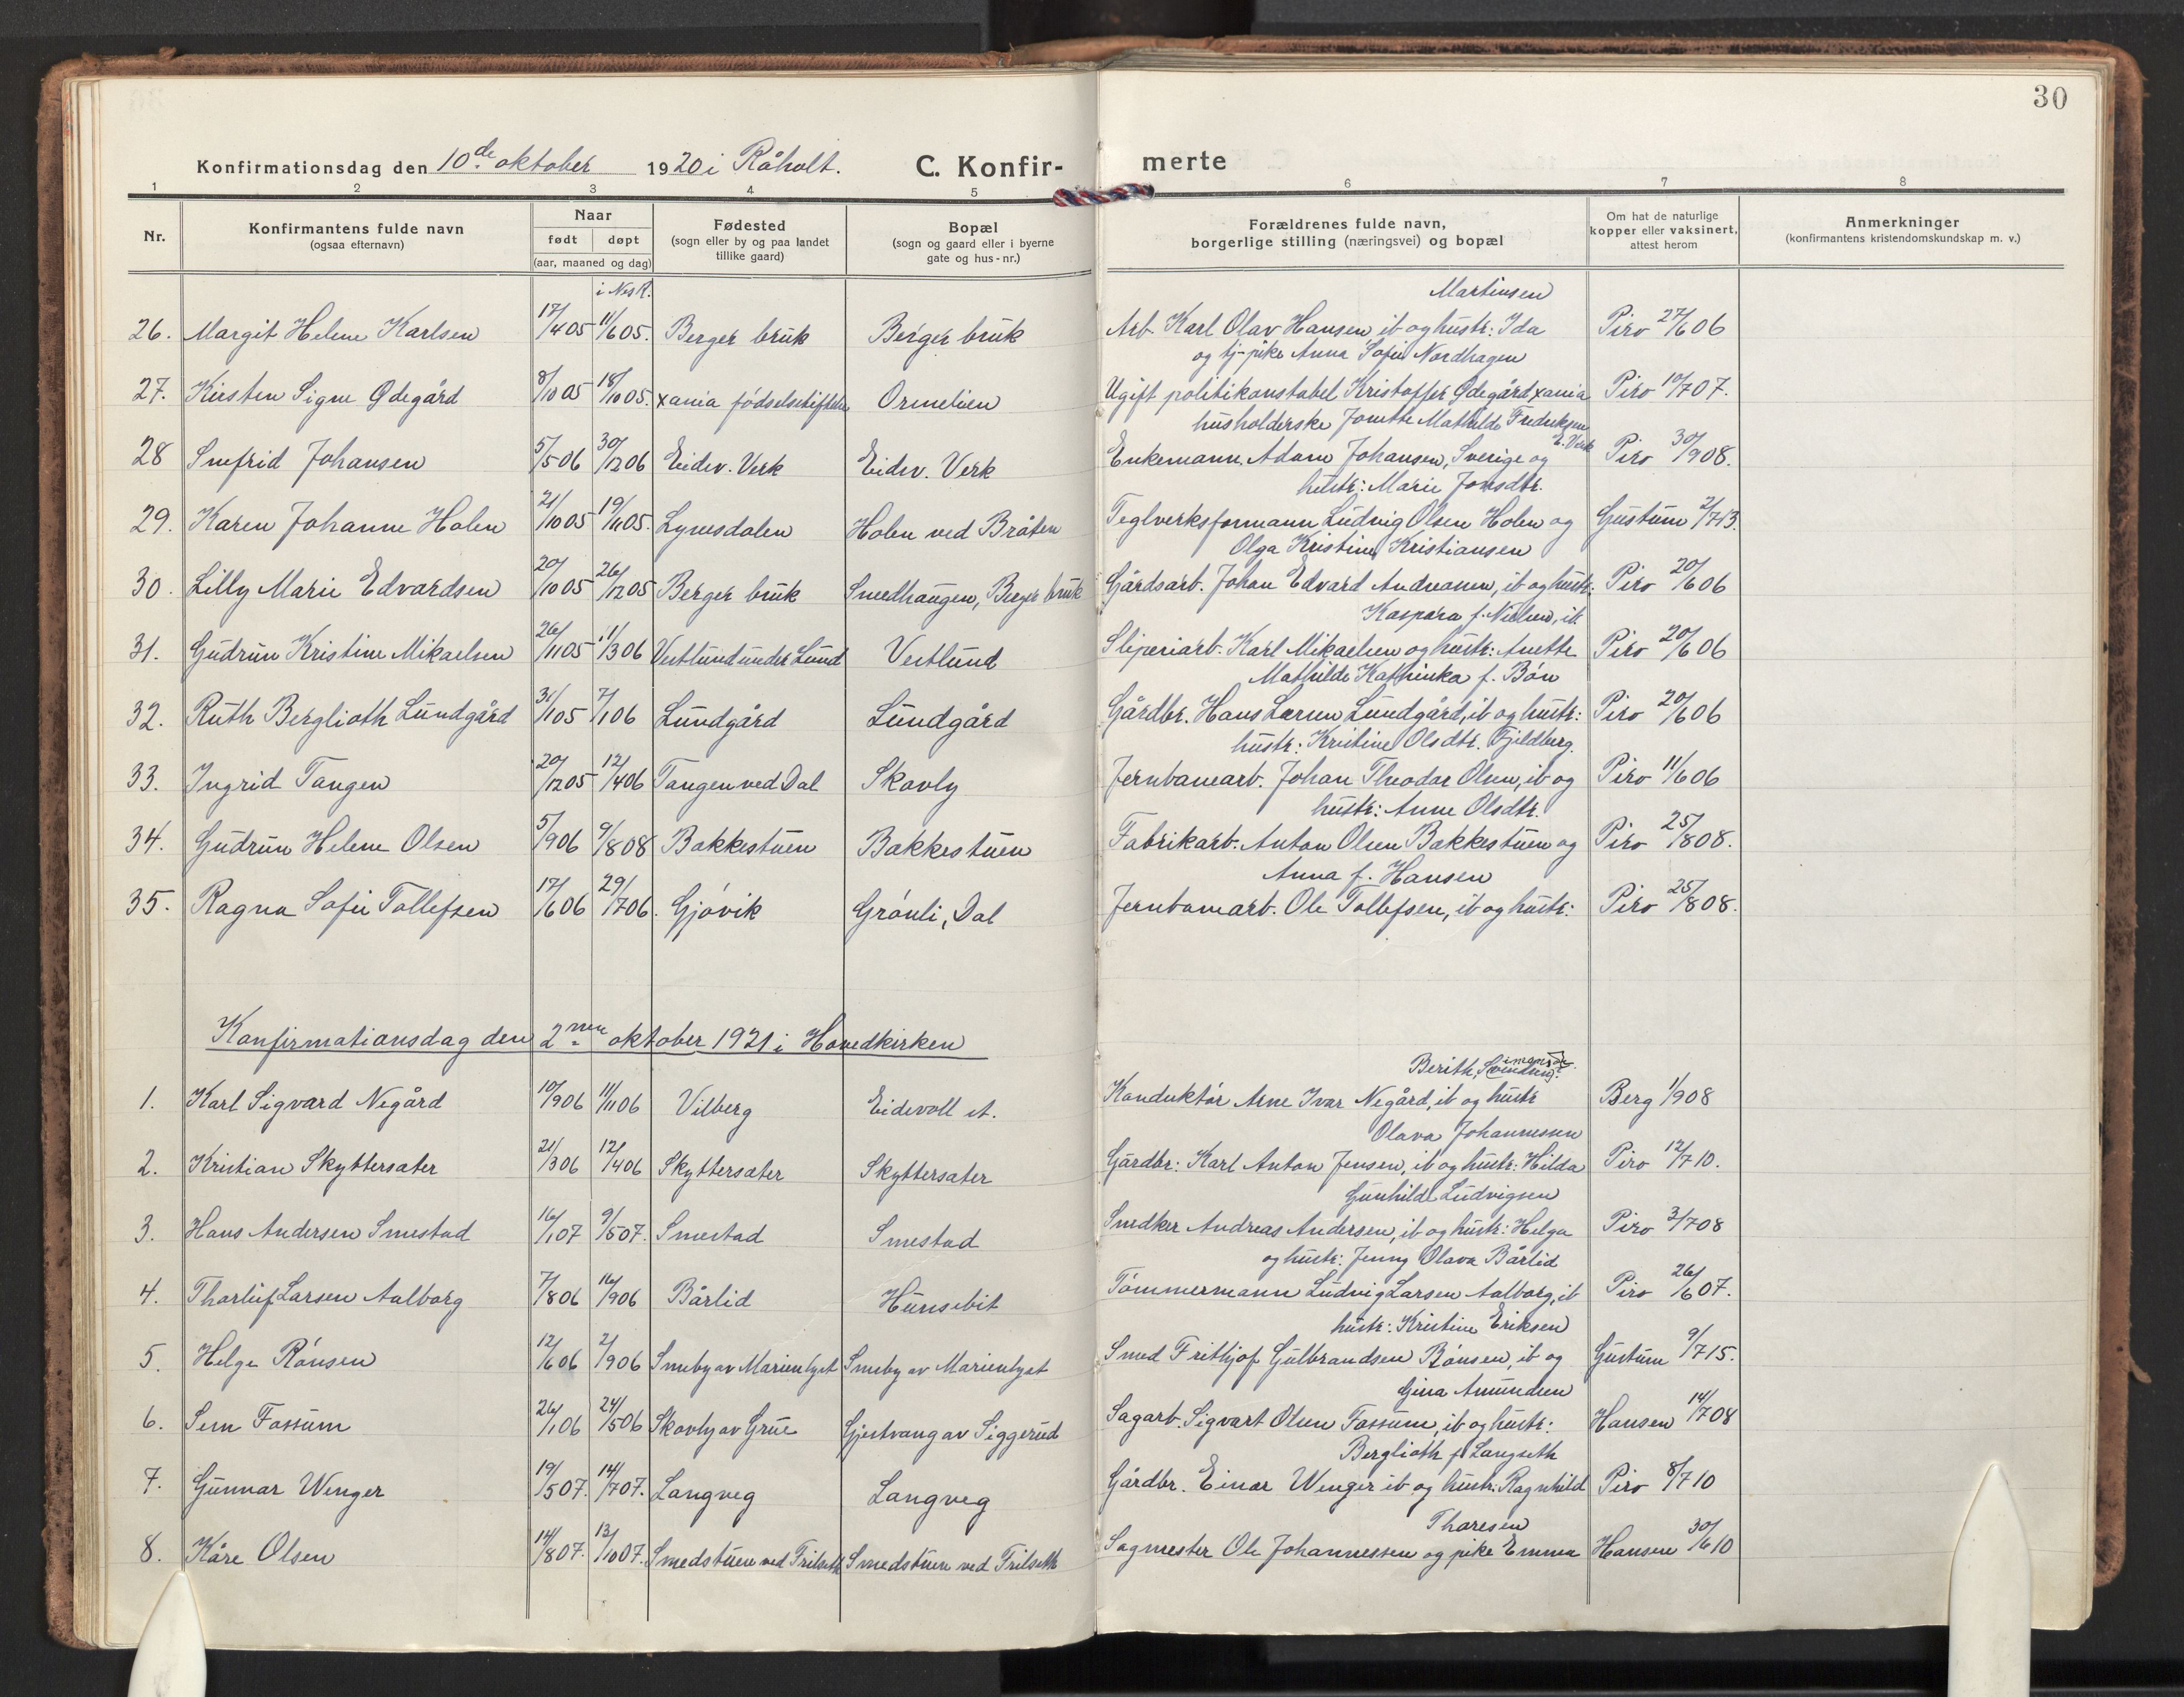 30
Konfirmationsdag den 10de oktober 1920 i Råholt. C. Konfir- merte
1 2 3 4 5 6 7 8
Nr.
Konfirmantens fulde navn
(ogsaa efternavn)
Naar
født døpt
(aar, maaned og dag)
Fødested
(sogn eller by og paa landet
tillike gaard)
Bopæl
(sogn og gaard eller i byerne
gate og hus-nr.)
Forældrenes fulde navn,
borgerlige stilling (næringsvei) og bopæl
Om hat de naturlige
kopper eller vaksinert,
attest herom
Anmerkninger
(konfirmantens kristendomskundskap m. v.)
i Nes R. Martinsen
26. Margit Helene Karlsen 17/4 05 11/6 05. Berger bruk Berger bruk Arb. Karl Olav Hansen, ib og hustr: Ida Piro 27/6 06
og tj-pike Anna Sofie Nordhagen
27. Kirsten Signe Ødegård 8/10 05 18/10 05. xania fødselsstiftelse Ormelien Ugift politikonstabel Kristoffer Ødegård xania Piro 10/7 07.
husholderske Jonette Mathilde Fredriksen E. Verk
28 Snefrid Johansen 5/5 06 30/12 06 Eidsv. Verk Eidsv. Verk Enkemann Adam Johansen, Sverige og Piro 30/9 08.
hustr: Marie Jonsdtr.
29. Karen Johanne Holen 21/10 05 19/11 05. Lynesdalen Holen ved Bråten Teglverksformann Ludvig Olsen Holen og Gustum 2/7 13.
Olga Kristine Kristiansen
30. Lilly Marie Edvardsen 20/10 05 26/12 05 Berger bruk Smedhaugen, Berger bruk Gårdsarb. Johan Edvard Andreassen, ib og hustr: Piro 20/6 06
Kaspara f. Nielsen, ib
31. Gudrun Kristine Mikaelsen 26/11 05 11/3 06 Vestlund under Lund Vestlund Sliperiarb. Karl Mikaelsen og hustr: Anette Piro 20/6 06
Mathilde Kathinka f. Bøn
32. Ruth Berglioth Lundgård 31/1 05 7/1 06 Lundgård Lundgård Gårdbr. Hans Larsen Lundgård, ib og hustr: Piro 20/6 06
hustr: Kristine Olsdtr. Fjeldberg.
33. Ingrid Tangen 20/12 05 12/4 06 Tangen ved Dal Skovly Jernbanearb. Johan Theodor Olsen, ib og Piro 11/6 06
hustr: Anne Olsdtr.
34. Gudrun Helene Olsen 5/9 06 9/8 08 Bakkestuen Bakkestuen Fabrikarb. Anton Olsen Bakkestuen og Piro 25/8 08.
Anna f. Hansen
35. Ragna Sofie Tollefsen 17/6 06 29/7 06. Gjøvik Grønli, Dal Jernbanearb. Ole Tollefsen, ib og hustr: Piro 25/8 08.
Konfirmationsdag den 2nen oktober 1921 i Hovedkirken
Berith
1. Karl Sigvard Negård 10/9 06 11/11 06 Vilberg Eidsvoll st. Konduktør Arne Ivar Negård, ib og hustr Berg 1/9 08
Olava Johannessen
2. Kristian Skyttersæter 21/3 06 12/4 06 Skyttersæter Skyttersæter Gårdbr: Karl Anton Jensen, ib og hustr: Hilda Piro 12/7 10.
Gunhild Ludvigsen
3. Hans Andersen Smestad 16/1 07 9/5 07. Smestad Smestad Snedker Andreas Andersen, ib og hustr: Helga Piro 3/7 08
og hustr: Jenny Olava Bårlid
4. Thorleif Larsen Aalborg 7/8 06 16/9 06 Bårlid Hunsebit Tømmermann Ludvig Larsen Aalborg, ib Piro 26/6 07.
hustr: Kristine Eriksen
5. Helge Rønsen 12/6 06 2/9 06 Smeby av Marienlyst Smeby av Marienlyst Smed Frithjof Gulbrandsen Rønsen, ib og Gustum 9/7 15.
Gina Amundsen
6. Sem Fossum 26/1 06 24/5 06 Skovly av Grue Gjestvang av Siggerud Sagarb. Sigvart Olsen Fossum, ib og hustr: Hansen 14/7 08
Berglioth f. Langseth
7. Gunnar Wenger 19/5 07. 14/7 07. Langveg Langveg Gårdbr. Einar Wenger ib og hustr: Ragnhild Piro 8/7 10
Thoresen
8. Kåre Olsen 14/8 07. 13/10 07. Smedstuen ved Trilseth Smedstuen ved Trilseth Sagmester Ole Johannessen og pike Emma Hansen 30/6 10